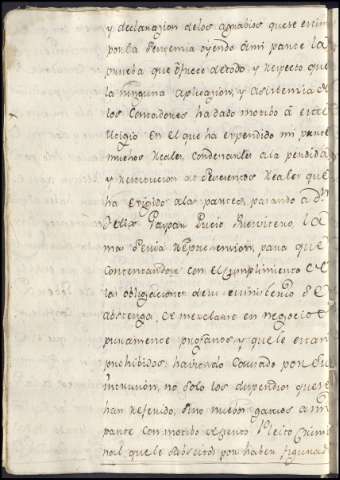 y declarazion delos agrabios que se estim
por la Sentencia oyendo a mi parte la
prueba que ofrece de todo, y respecto que
la ninguna aplicazion, y asistencia de
los Contadores ha dado motibo â este
litigio en el que ha expendido mi parte
muchos reales, condenarles a la perdida
y restitucion de Doscientos reales que
ha exigido alas partes, pasando a Dn
Gaspar Lucio
mas seria reprehension, para que
contentandose con el cumplimiento de
las obligaciones de su ministerio se
abstenga, de mezclarse en negocios
puramente profanos y que le estan
prohibidos; haviendo causado por su
intrusion, no solo los dispendios que se
han referido, sino muchos gastos a mi
parte con motibo de cierto Pleito Crimi
nal que le subscitò por haber figurado